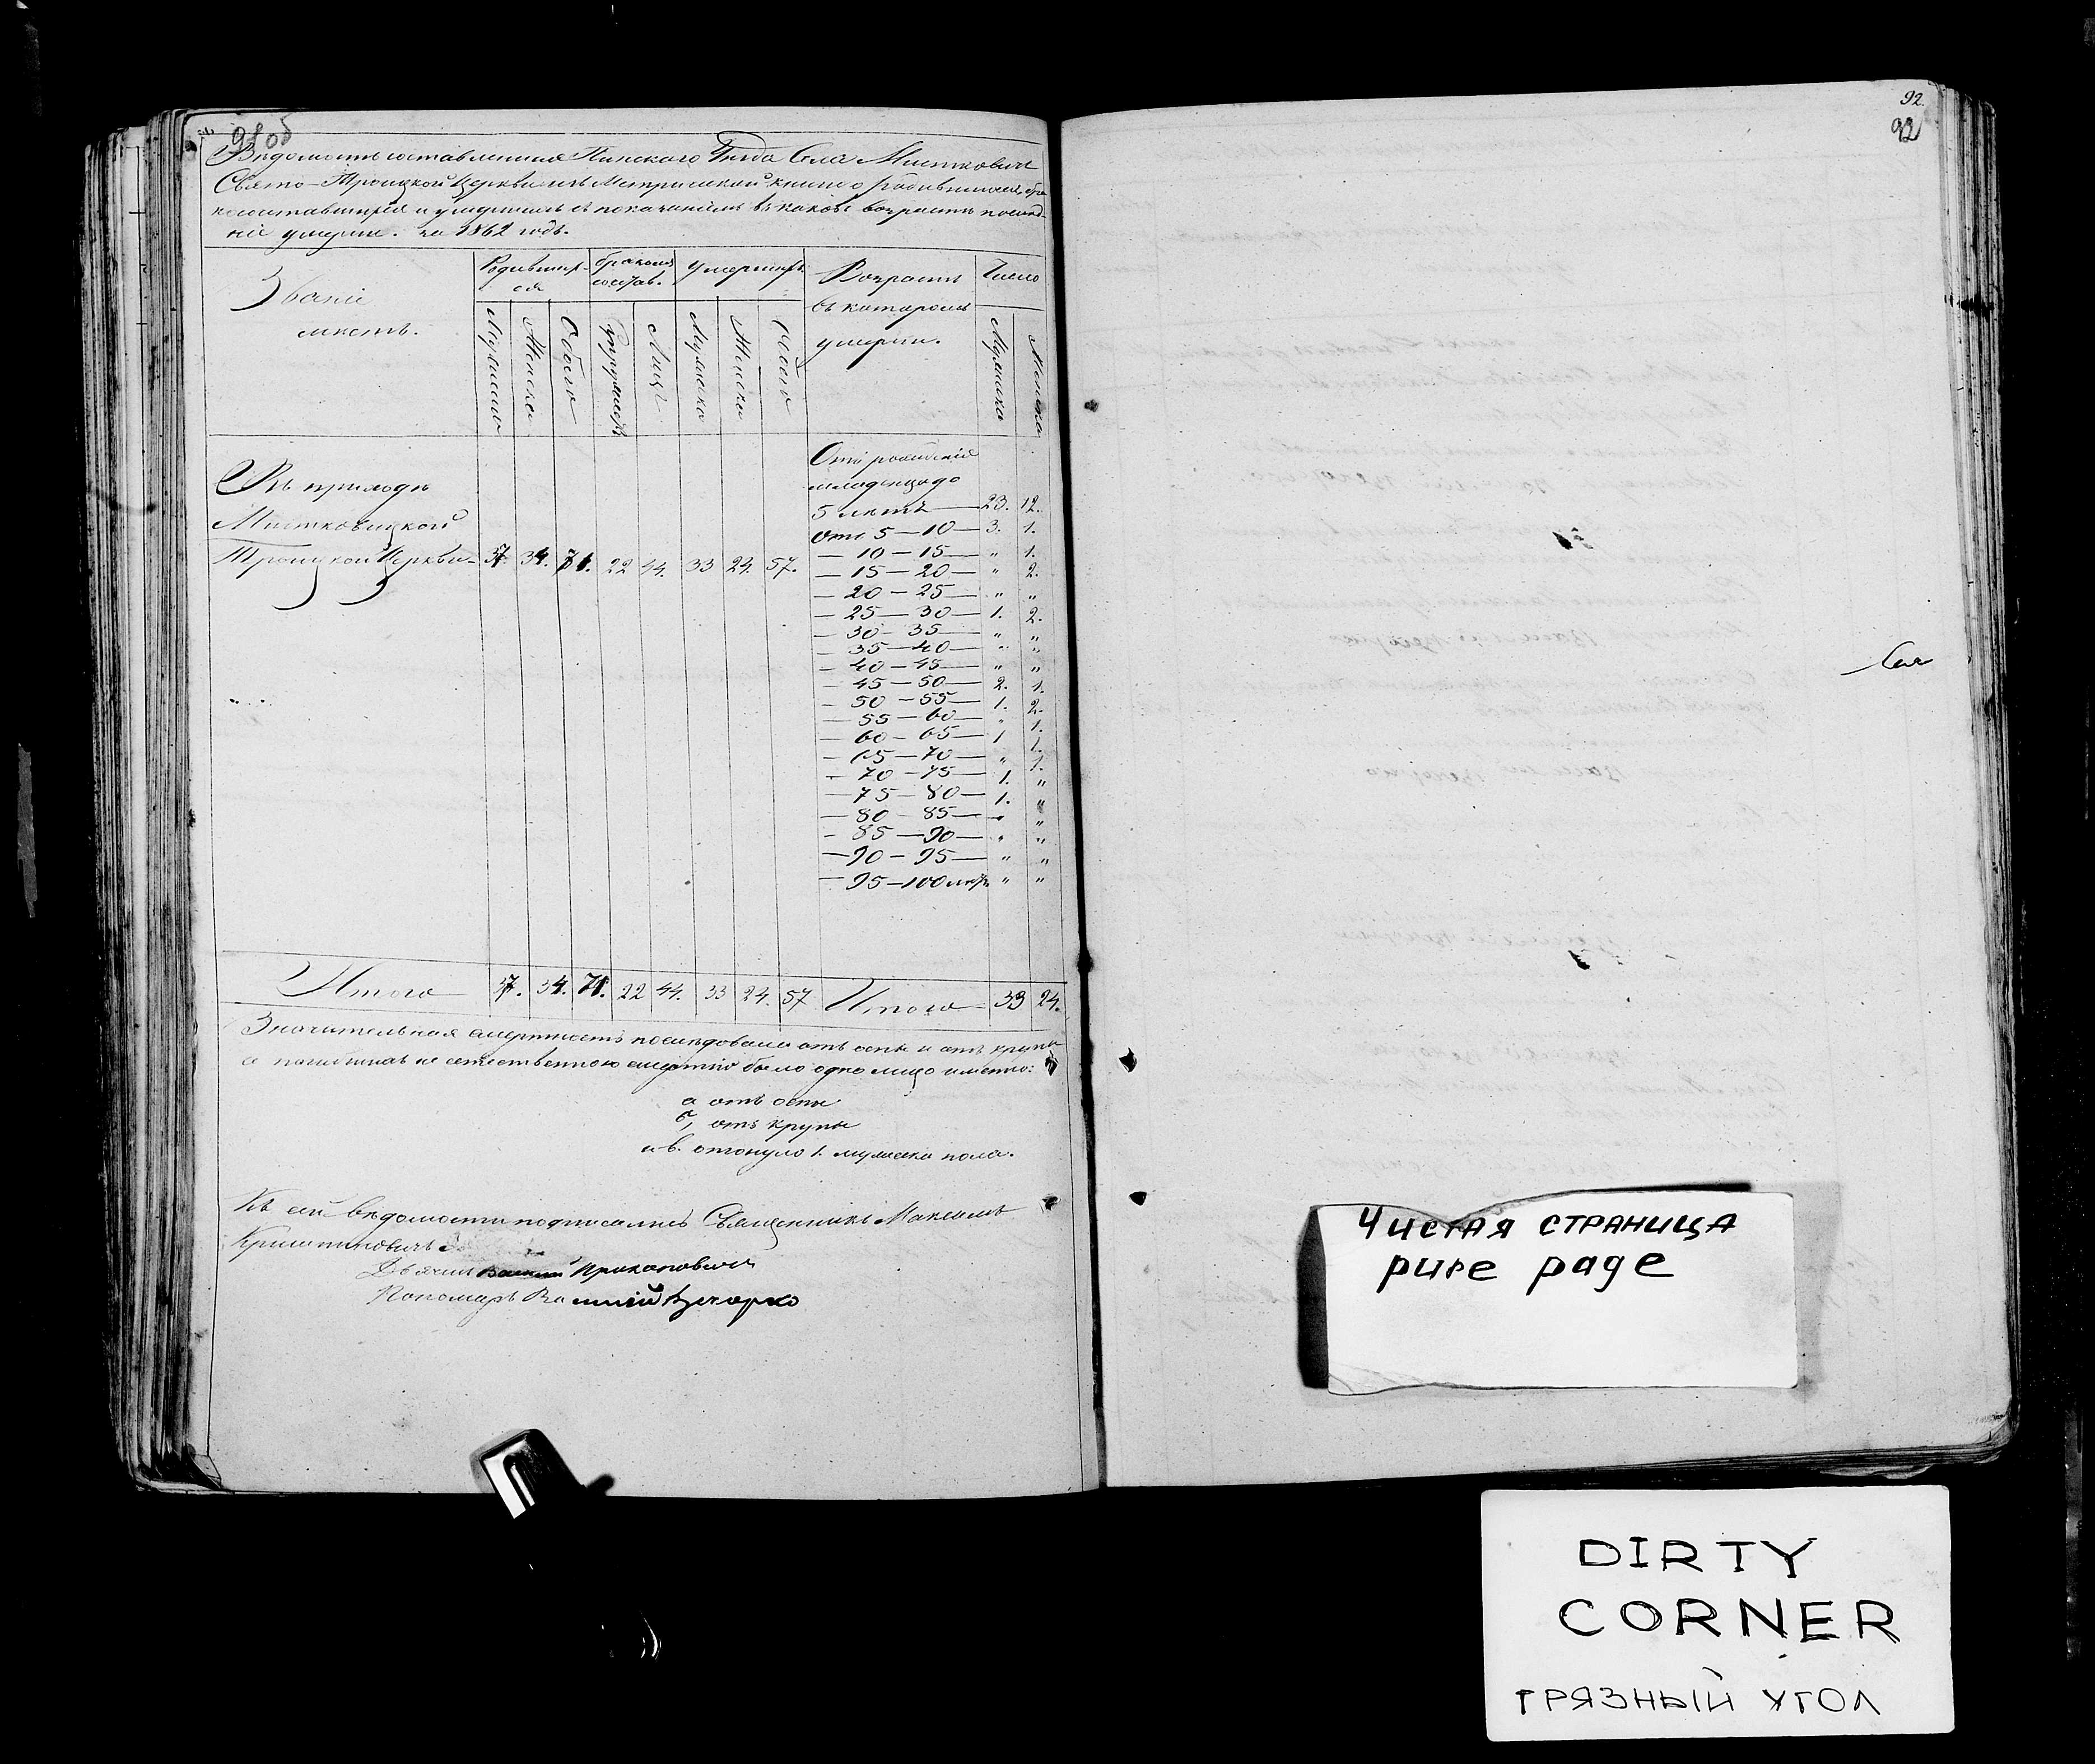 91 об
Ведомость составленная Пинскаго Уезда Села Мистковичъ
Свято-Троицкой Церкви изъ Метрической книги о родившихся, бра
косочетавшихся и умершихъ съ показаніемъ въ какомъ возрасте послед-
ніе умерли. за 1862 годъ.
Званіе
местъ.
Родивших-
ся
Мужеска
Женска
Обоего
бракомъ
сочетав.
Супружествъ
Лицъ
умершихъ
Мужеска
Женска
Обоего
Возрастъ
въ которомъ
умерли.
Число
Мужеска
Женска
Въ приходе
Мистковицкой
Троицкой Церкви- 37. 34. 71. 22 44. 33 24. 57.
Отъ рожденія
младенца до
5 летъ — 23. 12.
Отъ 5 — 10 — 3. 1.
— 10 — 15 — " 1.
— 15 — 20 — " 2.
— 20 — 25 — " "
— 25 — 30 — 1. 2.
— 30 — 35 — " "
— 35 — 40 — " "
— 40 — 45 — " "
— 45 — 50 — 2. 1.
— 50 — 55 — 1. 2.
— 55 — 60 — " 1.
— 60 — 65 — 1 1.
— 65 — 70 — " 1.
— 70 — 75 — 1. "
— 75 — 80 — 1. "
— 80 — 85 — " "
— 85 — 90 — " "
— 90 — 95 — " "
— 95 — 100 летъ " "
Итого 37. 34. 71. 22 44. 33 24. 57 Итого 33 24.
Значительная смертность последовала отъ оспы и отъ крупы
а погибшихъ не естественною смертію было одно лицо именно:
а отъ оспы
б, отъ крупы
и в. отонуло 1. мужеска пола.
Къ сей ведомости подписались Священникъ Максимъ
Дьячокъ Прокоповичъ
Пономарь Василій
92.
92
Чистая страница
pure page
DIRTY
CORNER
грязный угол